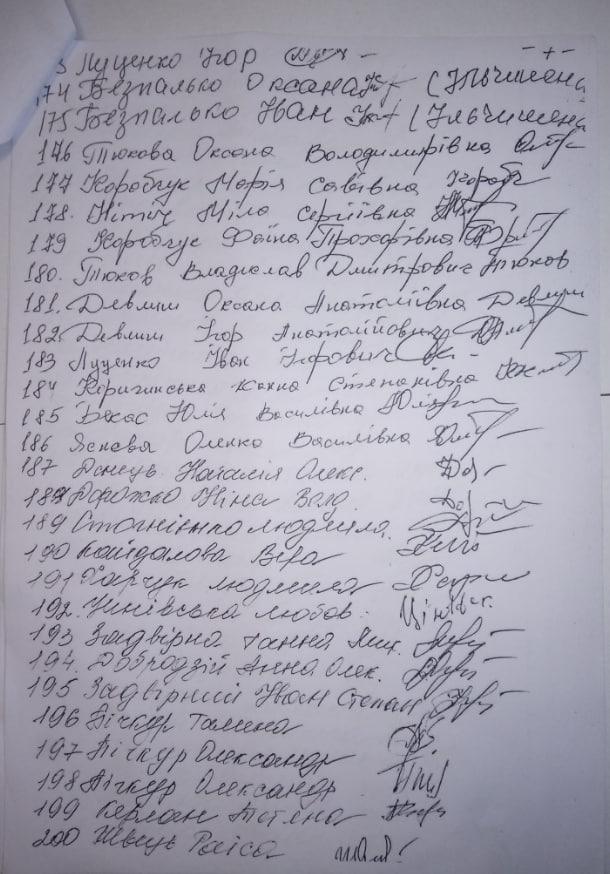 3 Луценко Ігор
174 Безпалько Оксана
175 Безпалько Іван
176 Тюкова Оксана Володимирівна
177 Коробчук Марія Савівна
178. Нітіч Міла Сергіївна
179 Коробчук Фаїна Прохорівна
180. Тюков Владіслав Дмитрович Тюков
181. Девлиш Оксана Анатоліївна Девлиш
182. Девлиш Ігор Анатолійович
183 Луценко Іван Ігорович
184 Степанівна
185 Бекас Юлія Василівна
186 Яснова Оленка Василівна
187 Донець Наталія Олекс.
188 Дорожко Ніна Воло
189 Стогнієнко Людмила
190 Кайдалова Віра
191 Харчук Людмила
192. Чинівська Любов.
193 Задвірна Ганна Мих.
194. Добродзій Анна Олек.
195 Задвірний Іван Степан
196 Пічкур Галина
197 Пічкур Олександр
198 Пічкур Олександр
199 Керман Тетяна
200 Швець Раїса